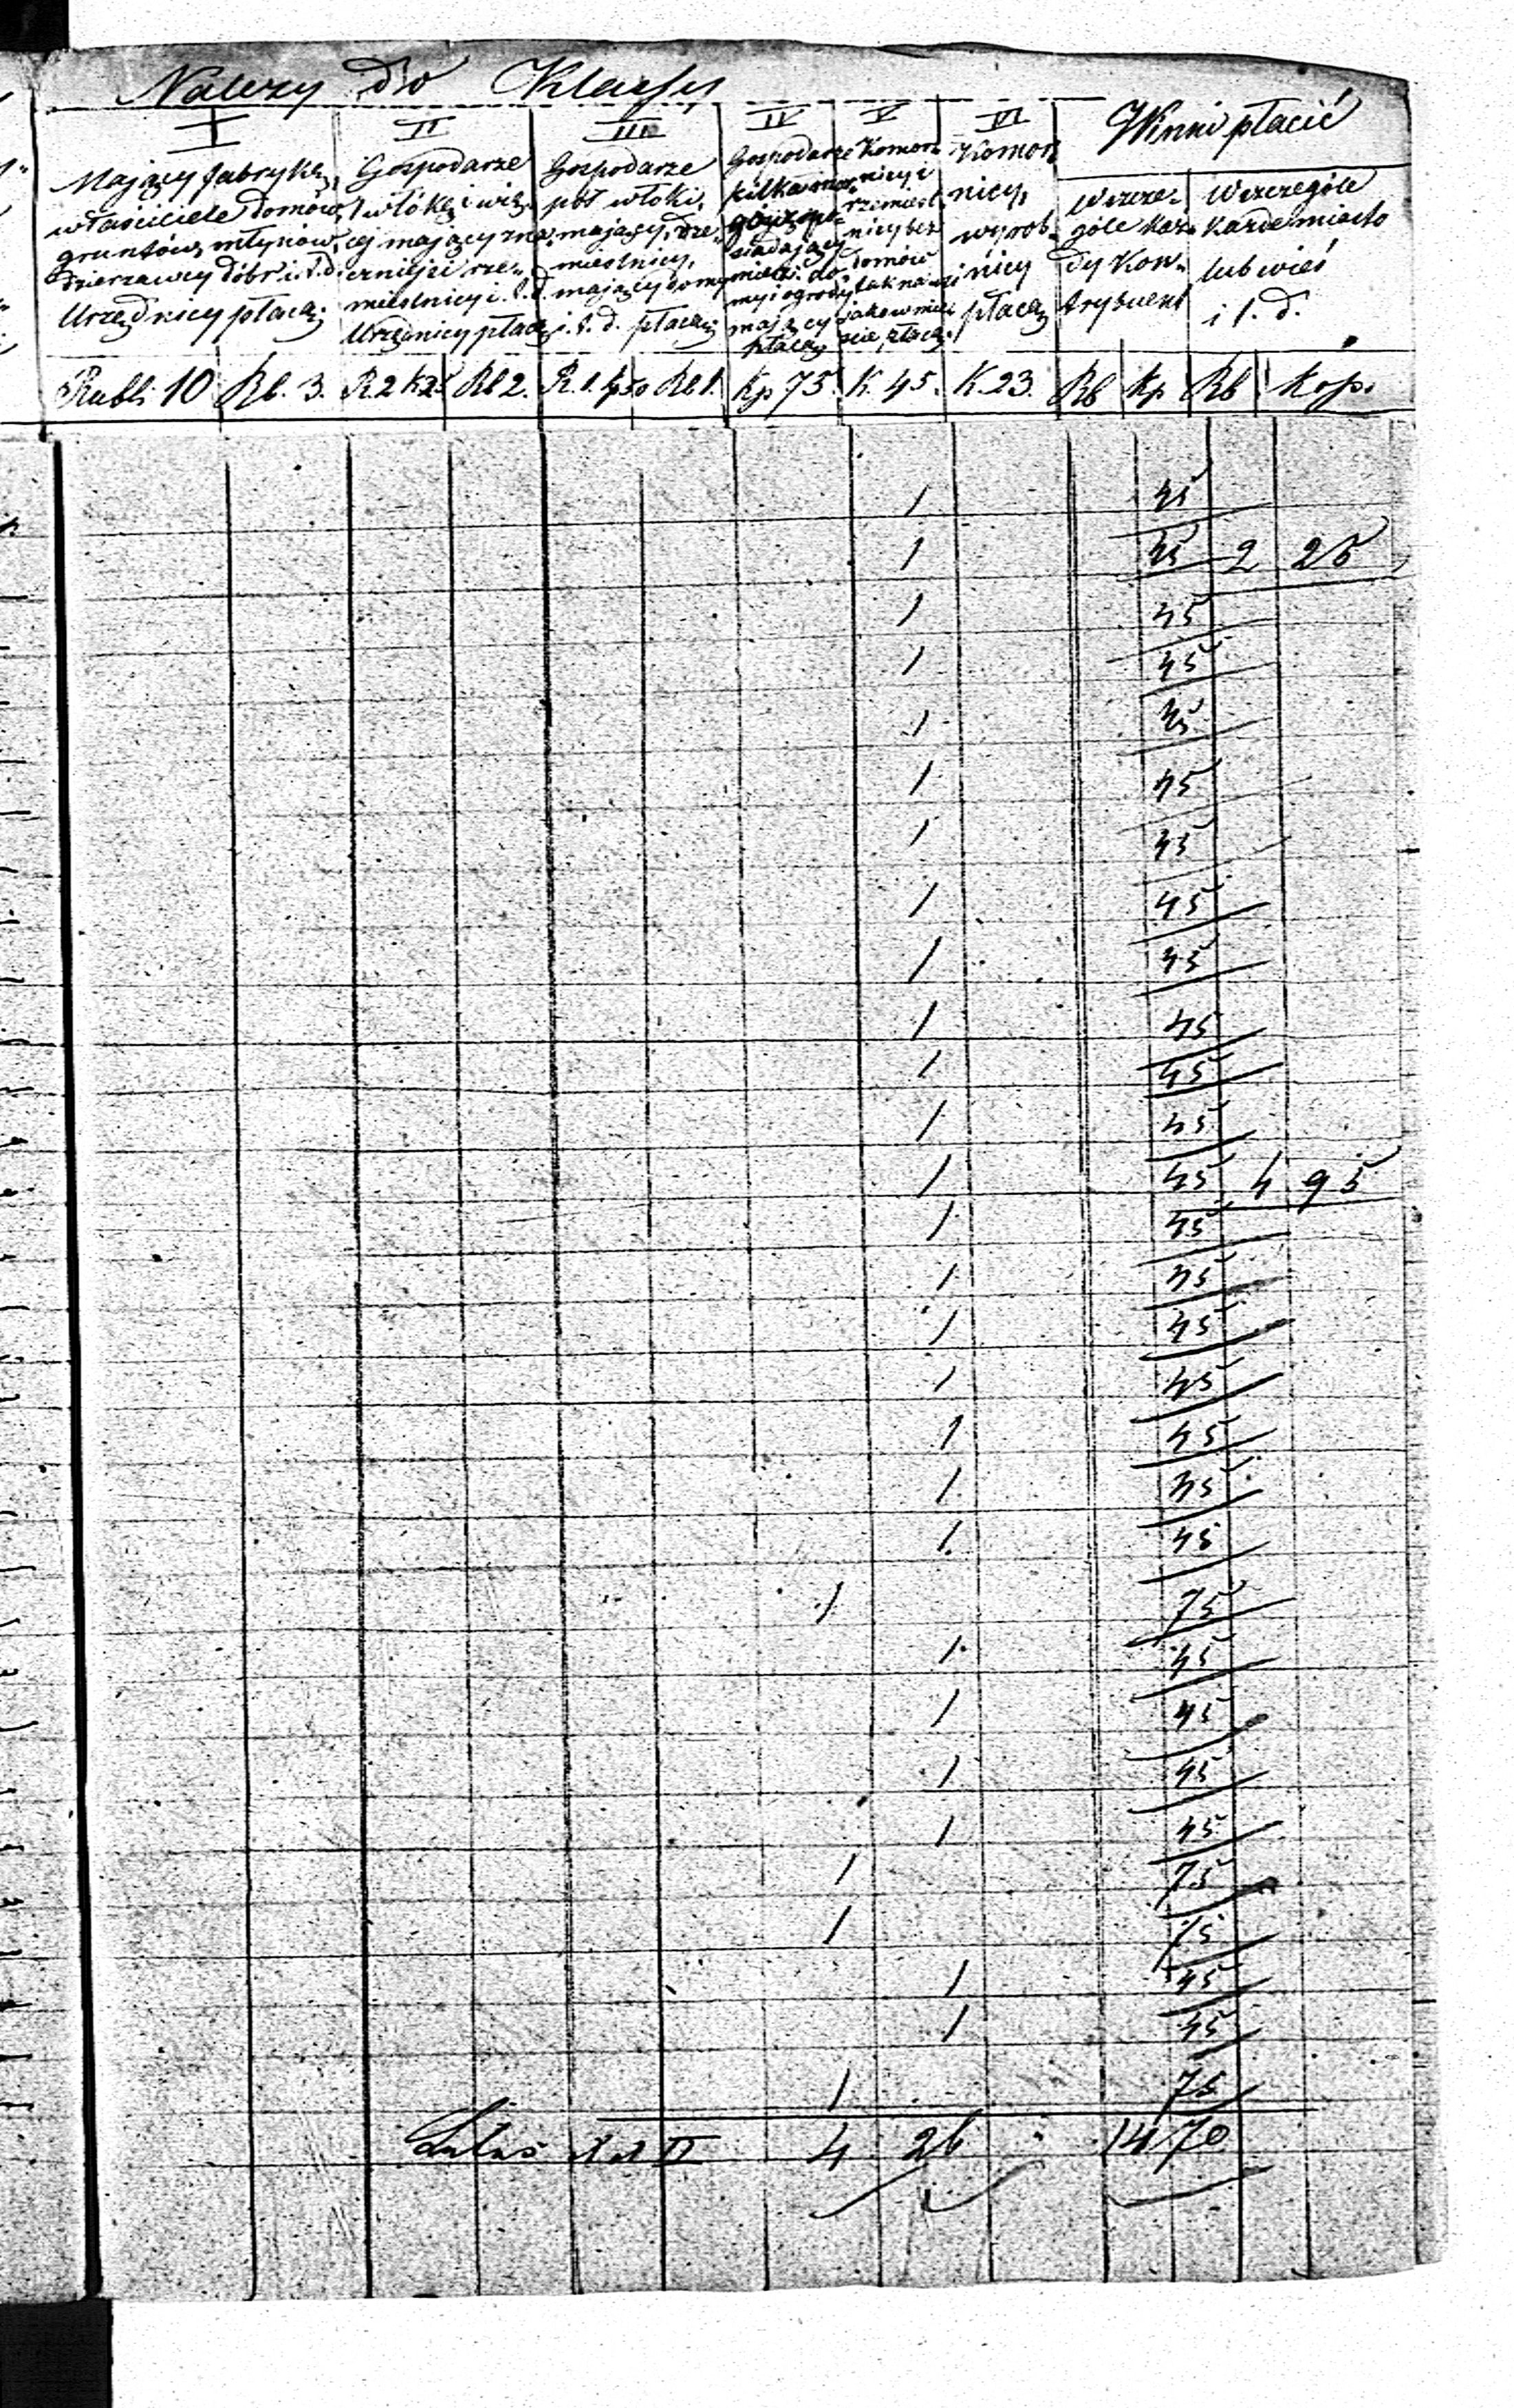 Należy do Klassy
I II III IV V VI Winni płacić
Mający fabrykę,
właściciele domów,
gruntów, młynów,
dzierzawcy dóbr i.t.d.
Urzędnicy płacą;
Gospodarze
1 włókę i wię-
cej mający zna-
czniejsi rze-
mieslnicy i.t.d.
Urzędnicy płacą
Gospodarze
pół włoki,
mający, Rze-
mieslnicy,
mający domy
i.t.d. płacą;
Gospodarze
kilka mor-
gów po-
siadający
mieszk. do-
my i ogrody
mający
płacą
Komor-
nicy i
rzemieśl-
nicy bez
domów
tak na wsi
jako w mie-
scie, płacą.
Komor-
nicy,
wyrob-
nicy
płacą
Wszcze-
góle każ-
dy Kon-
trybuent
Wszczególe
Każde miasto
lub wieś
i t. d.
Rubli 10 Rb. 3. R. 2 k 25 Rb 2. R. 1. kp 50 Rb 1. Kp 75. K. 45. K. 23. Rb Kp Rb Kop.
1 45
1 45 2 25
1 45
1 45
1 45
1 45
1 45
1 45
1 45
1 45
1 45
1 45
1 45 4 95
1 45
1 45
1 45
1 45
1 45
1 45
1 45
1 75
1 45
1 45
1 45
1 45
1 75
1 75
1 45
1 45
1 75
Latus II 4 26 " 14 70